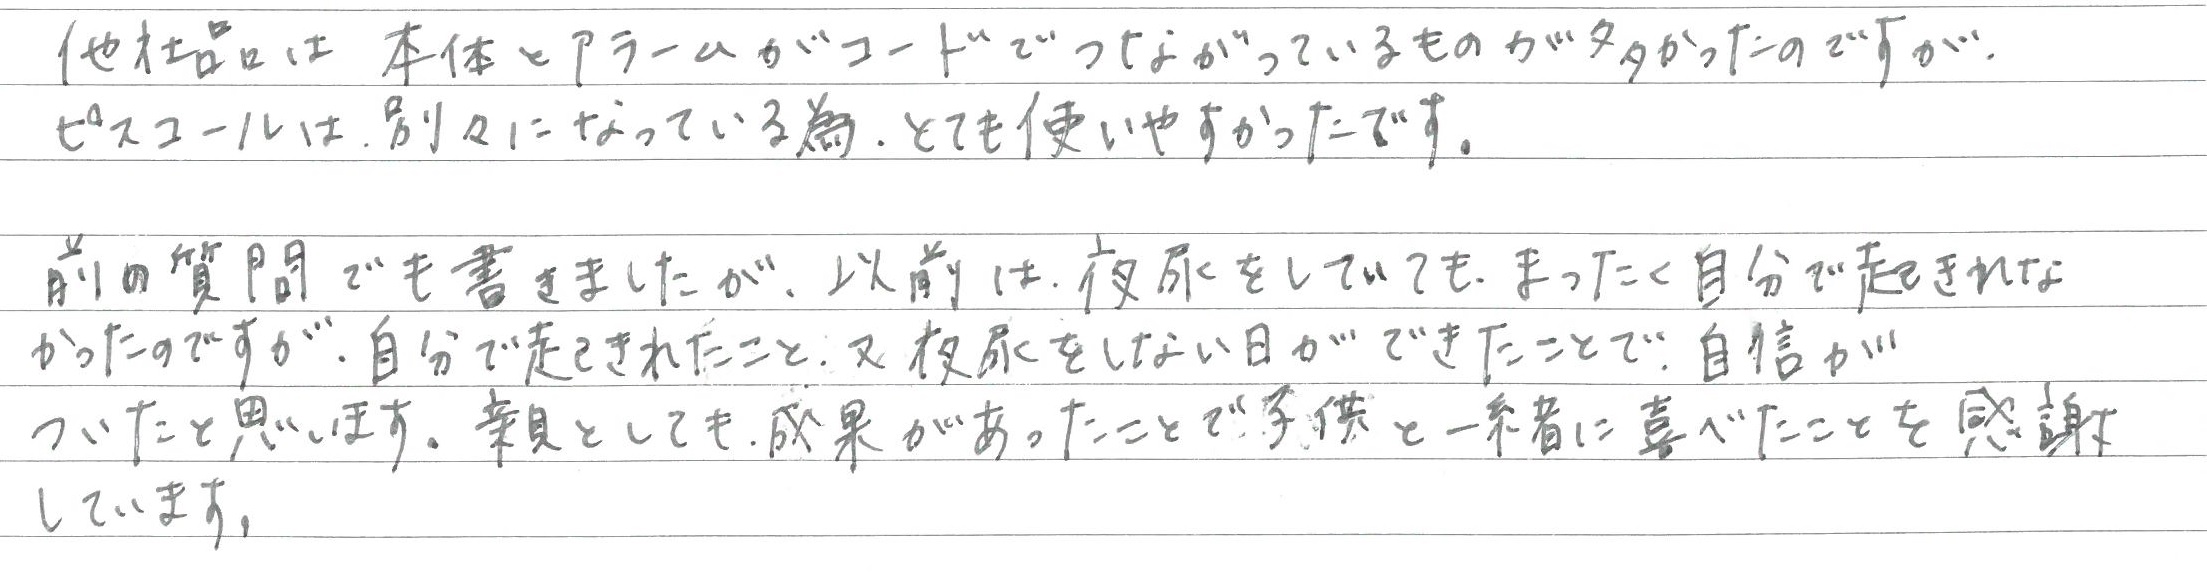 他社品は 本体とアラームがコードでつながっているものが多かったのですが、
ピスコールは、別々になっている為、とても使いやすかったです。
前の質問でも書きましたが、以前は、夜尿をしていても、まったく自分で起ききれな
かったのですが、自分で起ききれたこと、又 夜尿をしない日ができたことで、自信が
ついたと思います。親としても、成果があったことで子供と一緒に喜べたことを感謝
しています。